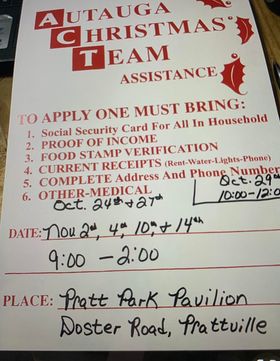 AUTAUGA
CHRISTMAS
TEAM
ASSISTANCE
TO APPLY ONE MUST BRING:
1. Social Security Card For All In Household
2. PROOF OF INCOME
3. FOOD STAMP VERIFICATION
4. CURRENT RECEIPTS (Rent-Water-Lights-Phone)
5. COMPLETE Address And Phone Number
6. OTHER-MEDICAL
Oct. 29th
10:00-12:0
Oct. 24th & 27th
DATE: Nov 2nd, 4th, 10th, & 14th
9:00 - 2:00
PLACE: Pratt Park Pavilion
Doster Road, Prattville